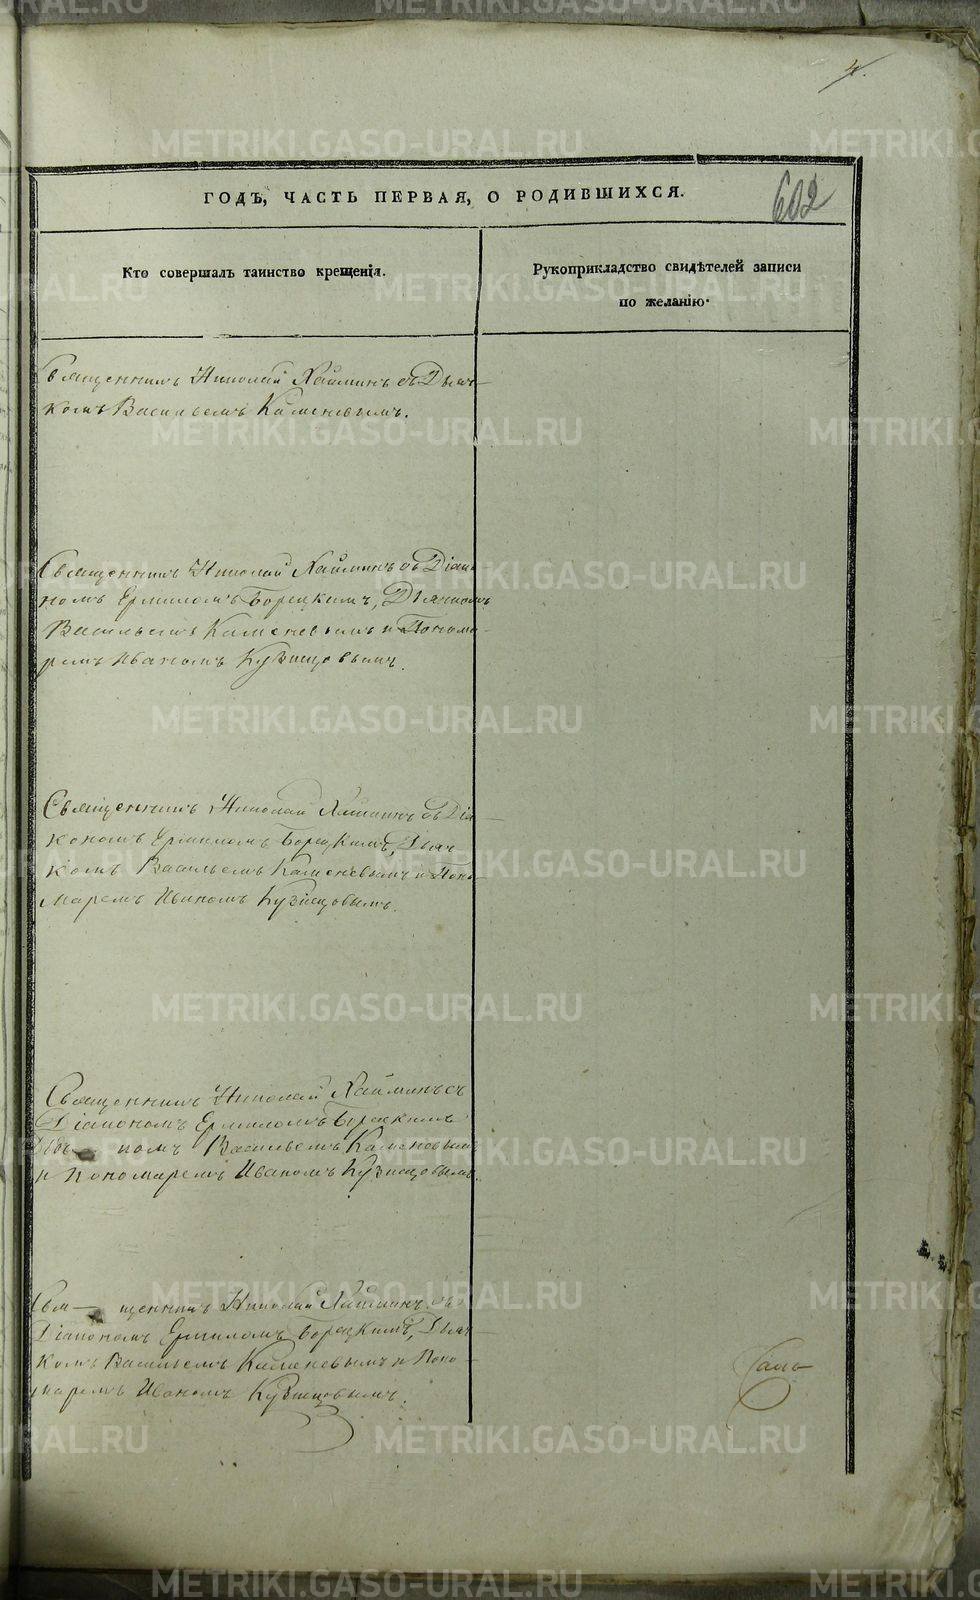 4.
ГОДЪ, ЧАСТЬ ПЕРВАЯ, О РОДИВШИХСЯ.
602
Кто совершалъ таинство крещенія.
Рукоприкладство свидѣтелей записи
по желанію.
Священникъ Николай Хайминъ съ Дьяч-
комъ Васильемъ Каменевымъ.
Священникъ Николай Хайминъ съ Діако-
номъ Ермиломъ Борецкимъ, Дьячкомъ
Васильемъ Каменевымъ и Понома-
ремъ Иваномъ Кузнецовымъ.
Священникъ Николай Хайминъ съ Діа-
кономъ Ермиломъ Борецкимъ, Дьяч
комъ Васильемъ Каменевымъ и Поно
маремъ Иваномъ Кузнецовымъ.
Священникъ Николай Хайминъ съ
Діакономъ Ермиломъ Борецкимъ
комъ Васильемъ Каменевымъ
и Пономаремъ Иваномъ Кузнецовымъ.
Свя— щенникъ Николай Хайминъ съ
Діакономъ Ермиломъ Борецкимъ, Дьяч-
комъ Васильемъ Каменевымъ и Поно-
маремъ Иваномъ Кузнецовымъ.
METRIKI.GASO-URAL.RU